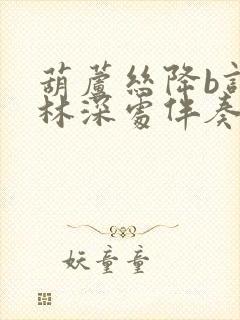 葫蘆絲降b調竹
林深處伴奏
妖童童